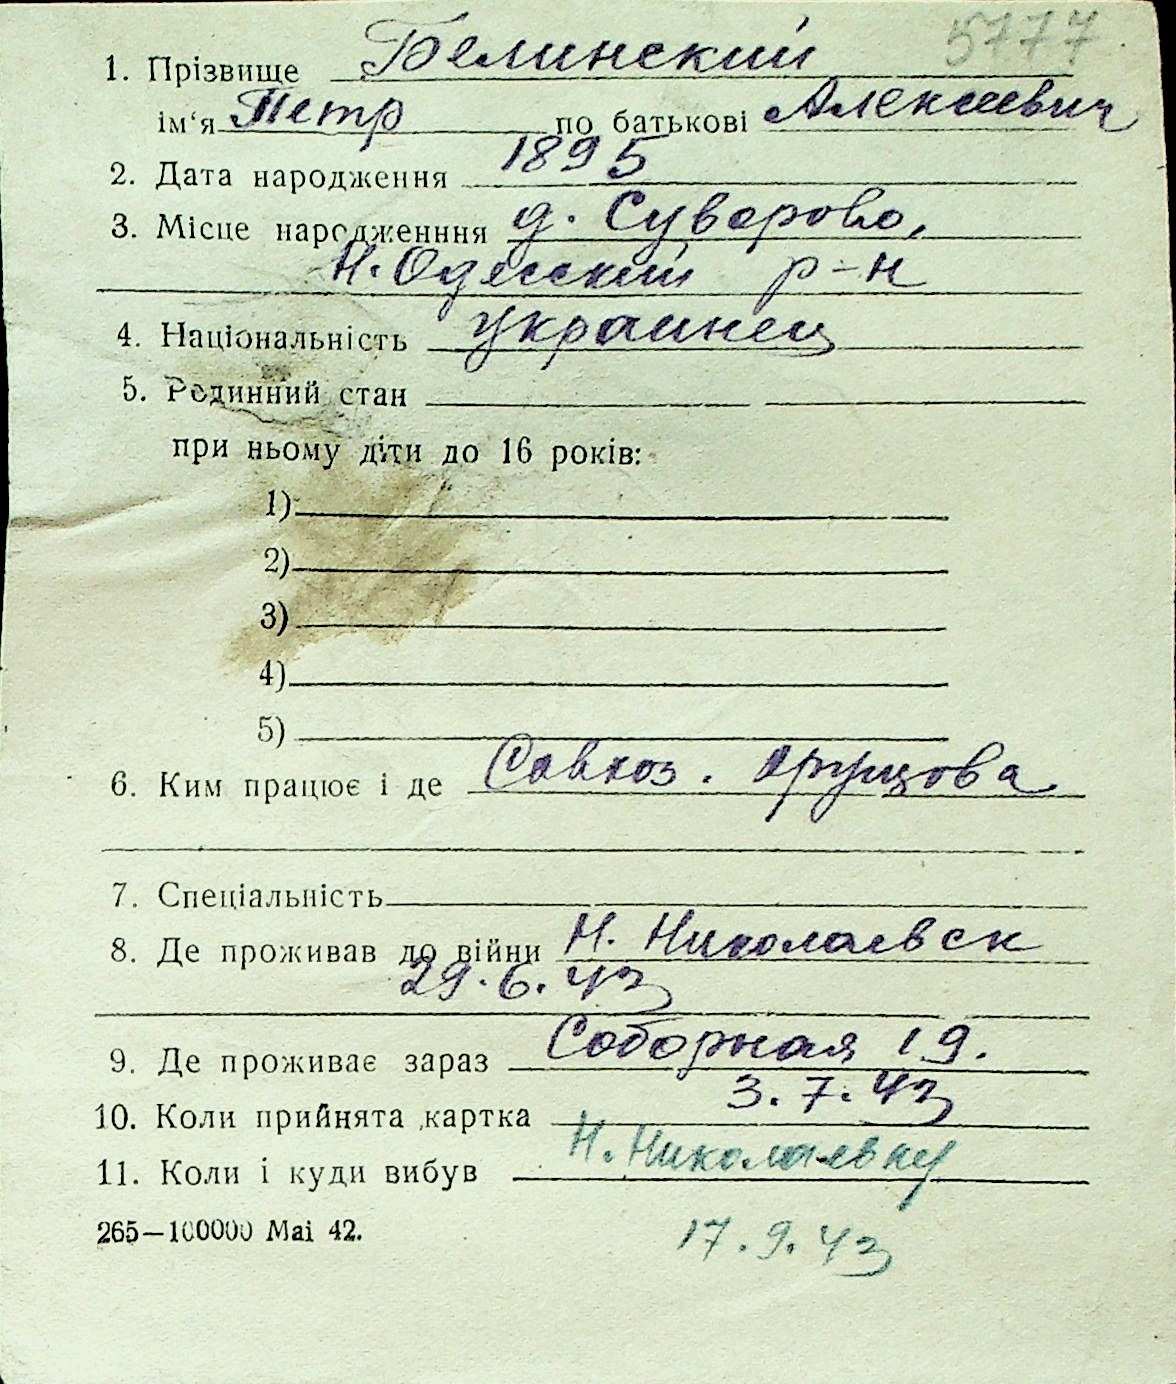 5777
1. Прізвище Белинский
ім'я Петр по батькові Алексеевич
2. Дата народження 1895
3. Місце народженння д. Суворово,
Н. Одесский р-н
4. Національність украинец
5. Родинний стан
при ньому діти до 16 років:
1)
2)
3)
4)
5)
6. Ким працює і де Совхоз.
7. Спеціальність
8. Де проживав до війни Н. Николаевск
29.6.43
9. Де проживає зараз Соборная 19.
10. Коли прийнята картка 3.7.43
11. Коли і куди вибув Н. Николаевку
265—100000 Mai 42.
17.9.43